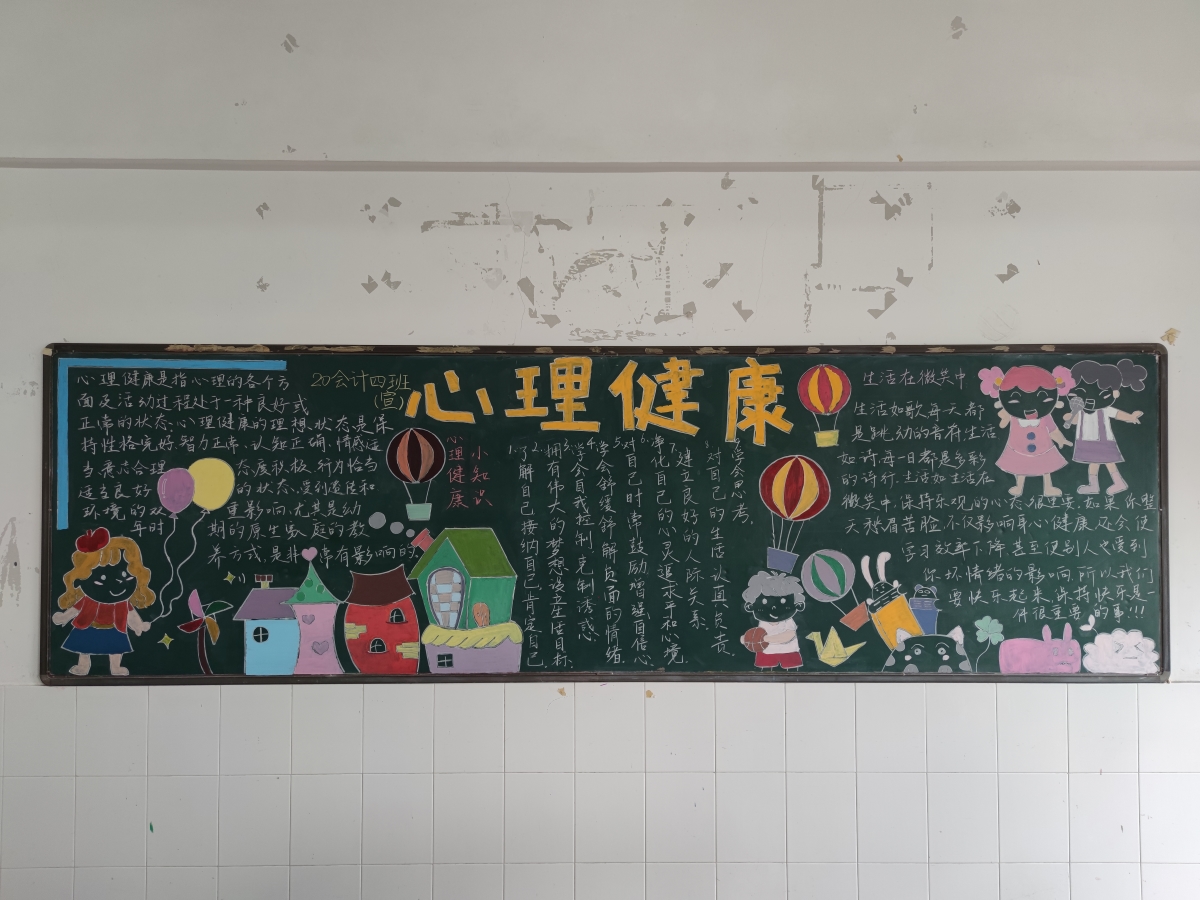 心理健康
20会计四班
(宣)
心理健康是指心理的各个方
面及活动过程处于一种良好或
正常的状态.心理健康的理想状态是保
持性格完好.智力正常.认知正确.情感适
当.意志合理 态度积极.行为恰当
适应良好 的状态.受到遗传和
环境的双 重影响.尤其是幼
年时 期的原生家庭的教
养方式是非常有影响的
心理健康
小知识
1.了解自己接纳自己肯定自己.
2.拥有伟大的梦想设立生活目标.
3.学会自我控制.克制诱惑.
4.学会舒缓舒解负面的情绪.
5.对自己时常鼓励增强自信心.
6.净化自己的心灵追求平和心境.
7.建立良好的人际关系.
8.对自己的生活认真负责.
学会思考.
生活在微笑中
生活如歌每一天都
是跳动的音符.生活
如诗.每一日都是多彩
的诗行.生活如生活在
微笑中.保持乐观的心态很重要.如果你整
天愁眉苦脸.不仅影响身心健康.还会使
学习效率下降.甚至使别人也受到
你坏情绪的影响.所以我们
要快乐起来.保持快乐是一
件很重要的事!!!